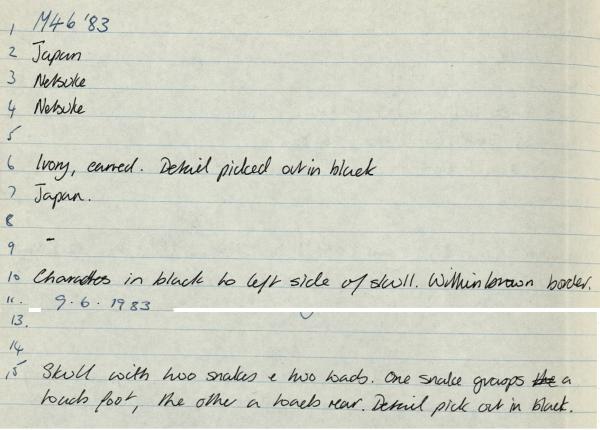 1 M46 '83
2 Japan
3 Netsuke
4 Netsuke
5
6 Ivory, carved. Detail picked out in black
7 Japan.
8
9 -
10 Characters in black to left side of skull. Within brown border.
11. 9.6.1983
13.
14
15 Skull with two snakes & two toads. One snake grasps the a
toads foot, the other a toads rear. Detail pick out in black.